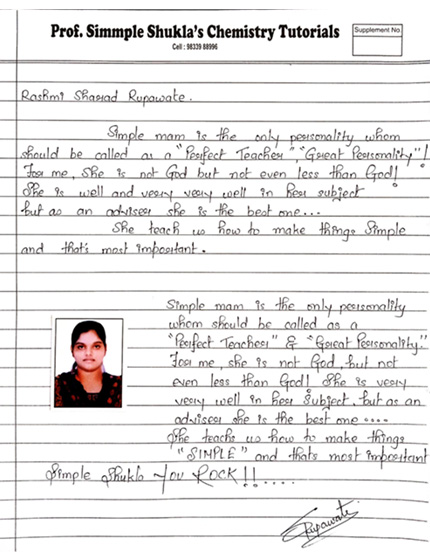 Prof. Simmple Shukla's Chemistry Tutorials
Cell : 98339 88996
Supplement No.
Rashmi Sharad Rupawate.
Simple mam is the only personality whom
should be called as a "Perfect Teacher", "Great Personality"!
For me, she is not God but not even less than God!
She is well and very very well in her subject
but as an adviser she is the best one...
She teach us how to make things Simple
and that's most important.
Simple mam is the only personality
whom should be called as a
"Perfect Teacher" & "Great Personality."
For me, she is not God, but not
even less than God! She is very
very well in her subject. but as an
adviser she is the best one....
She teachs us how to make things
"SIMPLE" and that's most important
Simple Shukla YOU ROCK!!....
Rupawate